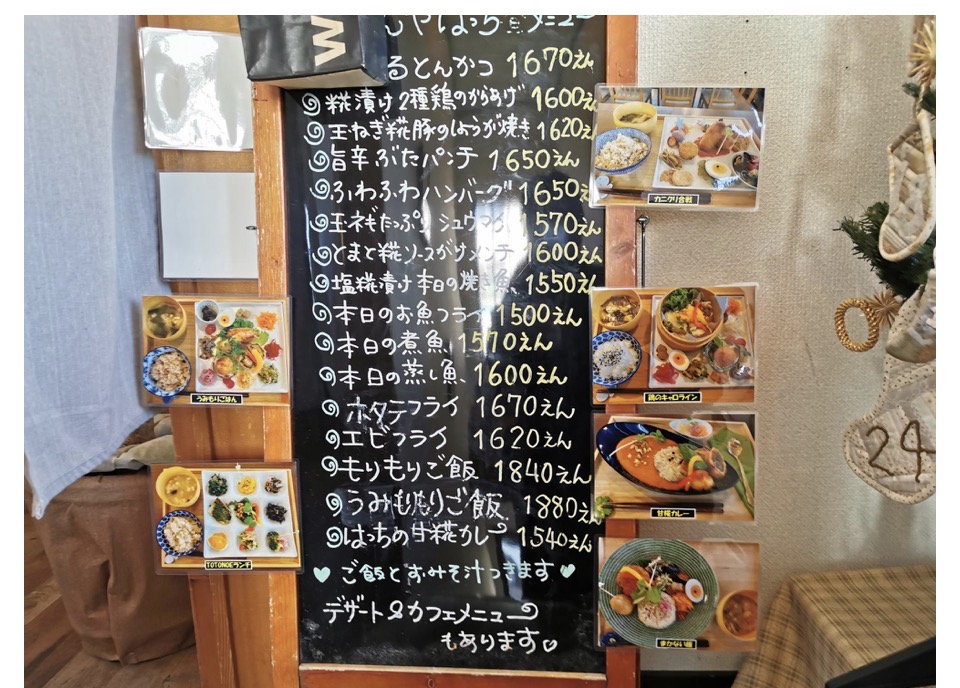 W
んやはっち メニュー
るとんかつ 1670えん
糀漬け2種鶏のからあげ 1600えん
玉ねぎ糀豚のしょうが焼き 1620えん
旨辛ぶたパンチ 1650えん
ふわふわハンバーグ 1650えん
玉ネギたっぷりシュウマイ 1570えん
とまと糀ソースがけメンチ 1600えん
塩糀漬け本日の焼き魚 1550えん
本日のお魚フライ 1500えん
本日の煮魚 1570えん
本日の蒸し魚 1600えん
ホタテフライ 1670えん
エビフライ 1620えん
もりもりご飯 1840えん
うみもりご飯 1880えん
はっちの甘糀カレー 1540えん
ご飯とおみそ汁つきます
デザート&カフェメニュー
もあります
うみもりごはん
TOTONOEランチ
カニクリ合戦
鶏のキャロライン
甘糀カレー
まかない膳
24